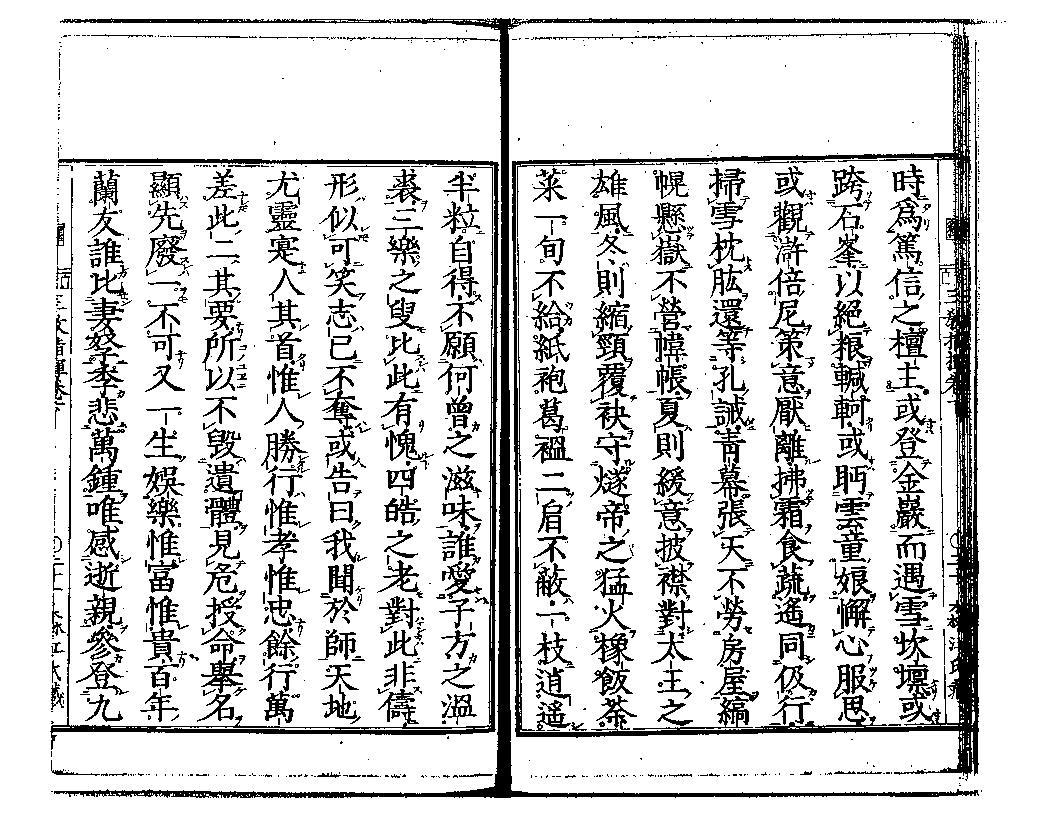 時爲篤信之檀主或登金巖而遇雪坎壈或
跨石峯以絶粮轗軻或眄雲童娘懈心服思
或觀滸倍尼策意厭離拂霜食蔬遙同伋行
掃雪枕肱還等孔誡靑幕張天不勞房屋縞
幌懸嶽不營幃帳夏則緩意披襟對太王之
雄風冬則縮頸覆袂守燧帝之猛火橡飯茶
菜一旬不給紙袍葛褞二肩不蔽一枝逍遙
半粒自得不願何曾之滋味誰愛子方之温
裘三樂之叟比此有愧四皓之老對此非儔
形似可笑志已不奪或告曰我聞於師天地
尤靈寔人其首惟人勝行惟孝惟忠餘行萬
差此二其要所以不毀遺體見危授命擧名
顯先廢一不可又一生娯樂惟富惟貴百年
蘭友誰比妻孥季悲萬鍾唯感逝親參登九